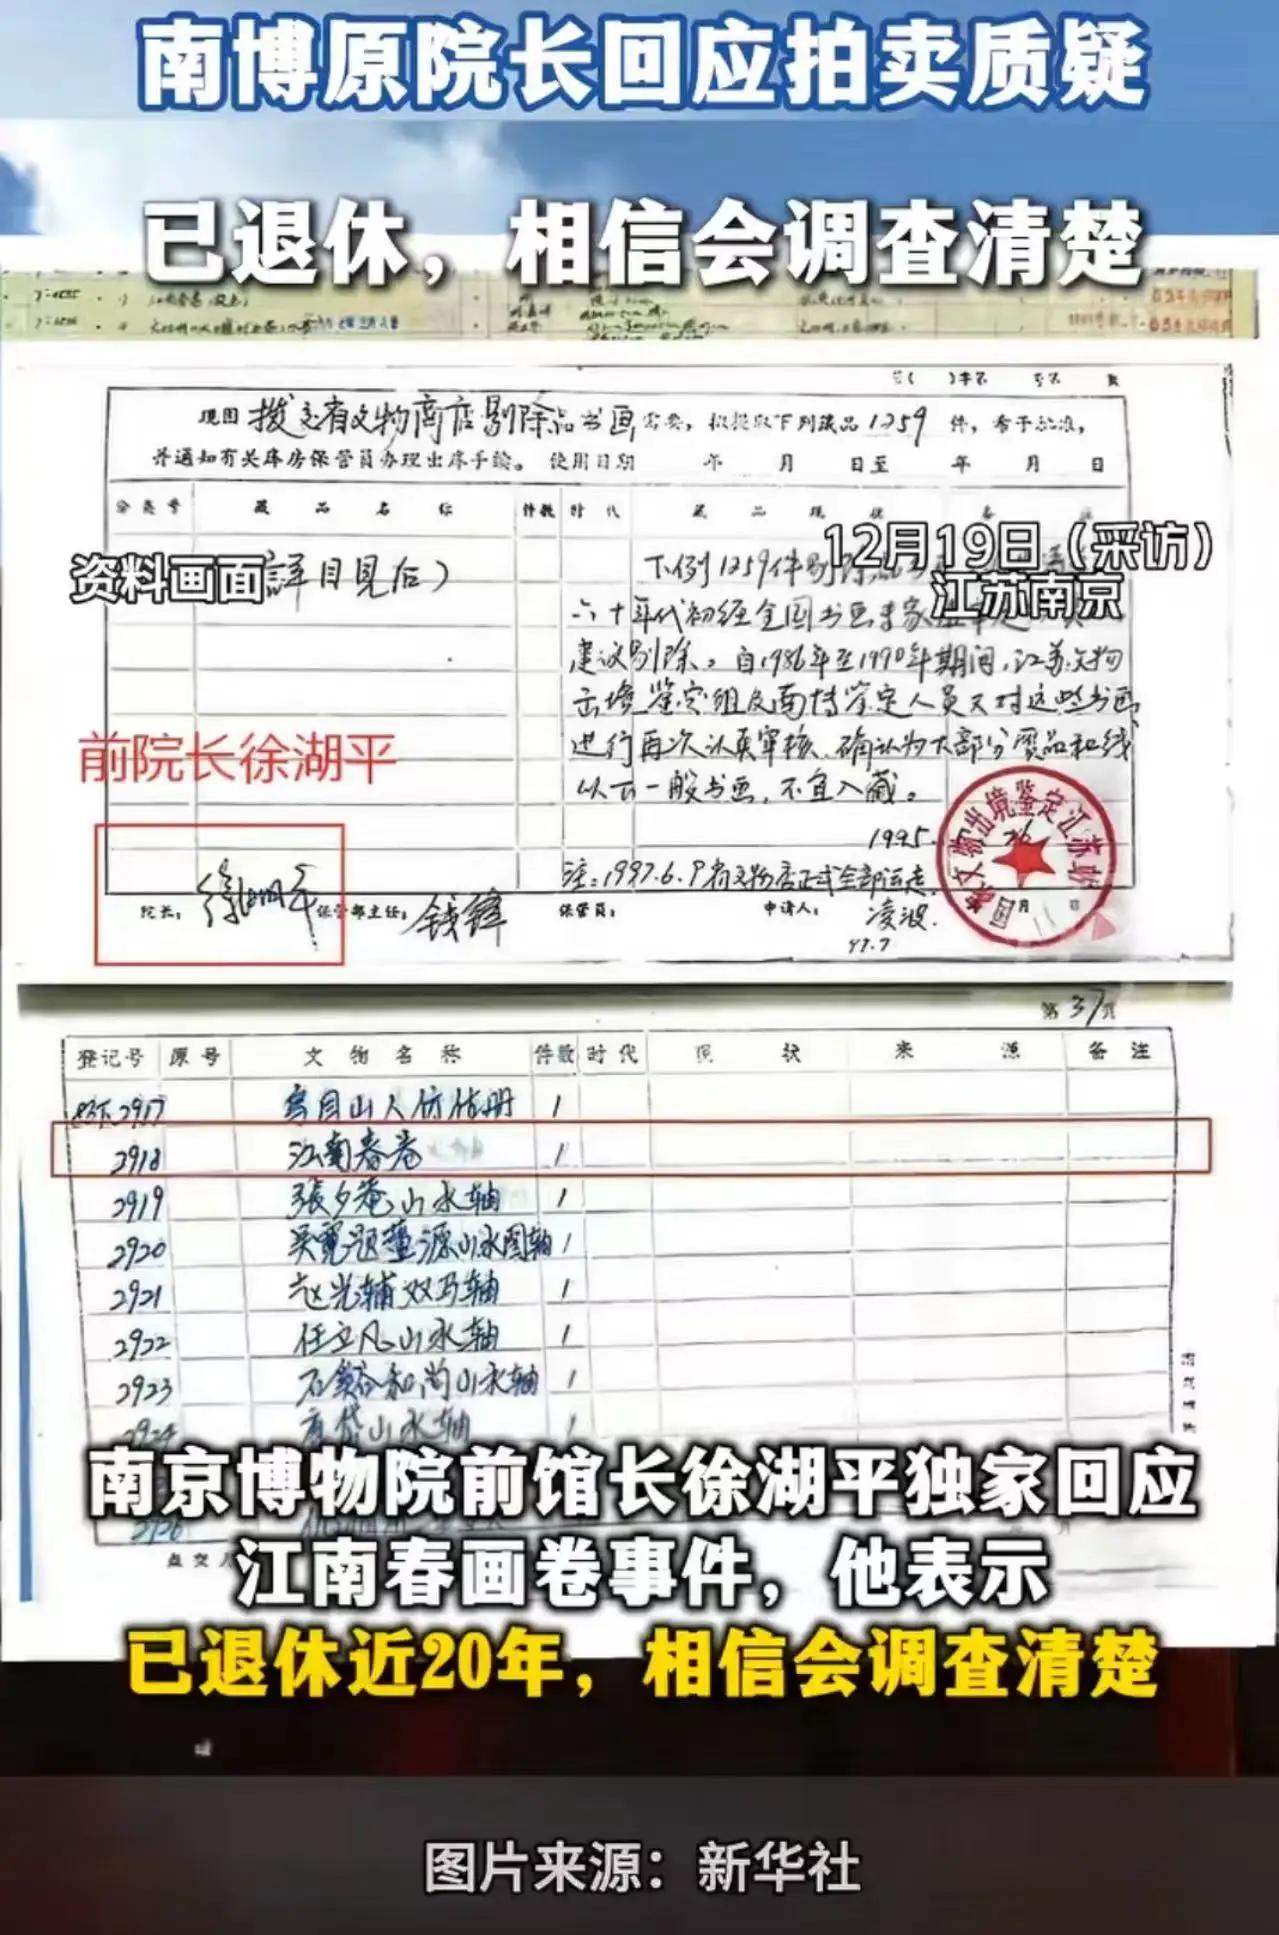 南博原院长回应拍卖质疑
已退休，相信会调查清楚
现因拨交省文物商店剔除品书画需要，拟提取下列藏品1259件，希予批准，
并通知有关库房保管员办理出库手续。使用日期 年 月 日至 年 月 日
分类号 藏品名称 件数 时代 藏品现状 备注
资料画面
12月19日（采访）
江苏南京
詳目見后）
下例1259件剔除
六十年代初经全国书画专家
建议剔除。自1986年至1990年期间，江苏文物
出境鉴定组及南博鉴定人员又对这些书画
进行再次认真审核，确认为大部分赝品和线
以下一般书画，不宜入藏。
1995.
注：1997.6.9省文物店正式全部运走
前院长徐湖平
院长：徐湖平 保管部主任：钱锋 保管员： 申请人：凌波
97.7
文物出境鉴定江苏站
第37页
登记号 原号 文物名称 件数 时代 现状 来源 备注
2917 仿古册 1
2918 江南春卷 1
2919 張夕菴山水轴 1
2920 吴霓题董源山水图轴 1
2921 赵光辅双马轴 1
2922 任立凡山水轴 1
2923 石谿和尚山水轴 1
2924 山水轴 1
南京博物院前馆长徐湖平独家回应
江南春画卷事件，他表示
已退休近20年，相信会调查清楚
图片来源：新华社